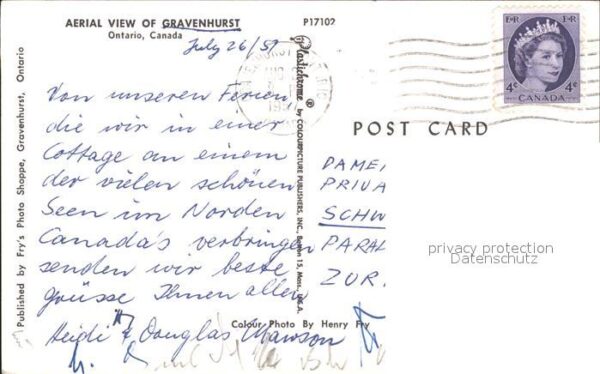 AERIAL VIEW OF GRAVENHURST
Ontario, Canada
P17102
July 26/59
Von unseren Ferien,
die wir in einer
Cottage an einem
der vielen schönen
Seen im Norden
Canada's verbringen
senden wir beste
Grüsse Ihnen allen
Heidi & Douglas Mawson
Colour Photo By Henry Fry
Published by Fry's Photo Shoppe, Gravenhurst, Ontario
Plastichrome ® by COLOURPICTURE PUBLISHERS, INC., Boston 15, Mass., U.S.A.
E II R E II R
4c 4c
CANADA
POST CARD
DAME
PRIVA
SCHW
PARAL
ZUR.
privacy protection
Datenschutz